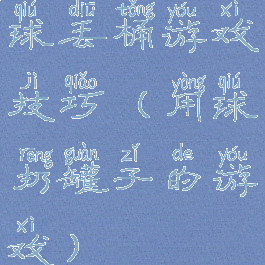 qiú diū tǒng yóu xì
球丢桶游戏
jì qiǎo yòng qiú
技巧（用球
rēng guàn zǐ de yóu
扔罐子的游
xì
戏）